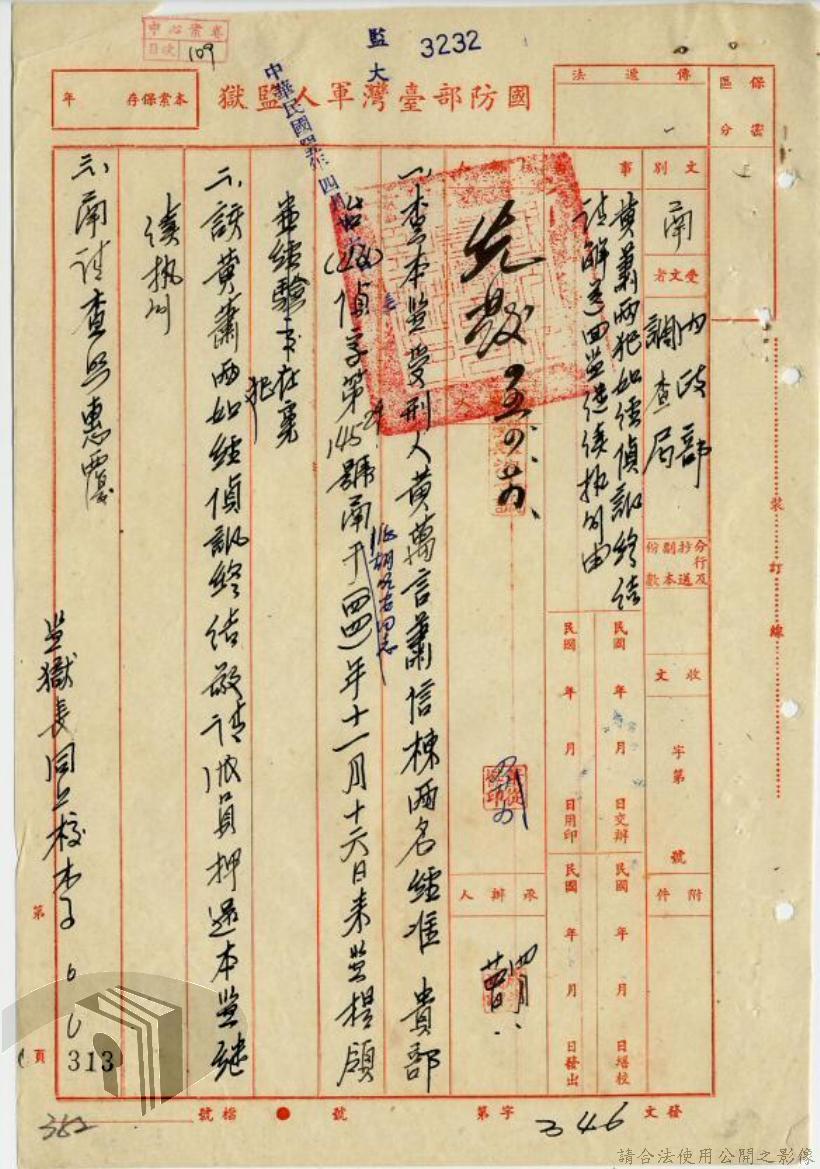 中心業卷
目次 109
監大 3232
中華民國
國防部臺灣軍人監獄
本案保存 年
傳遞法
保密區分
文別 函
受文者 內政部調查局
事由
黃蕭兩犯如經偵訊終結
請解送回監繼續執刑由
分行及抄送 副本 份數
收文 字第 號
附件
民國 年 月 日交辦
民國 年 月 日用印
民國 年 月 日繕校
民國 年 月 日發出
先發
承辦人
一、查本監受刑人黃萬言蕭信棟兩名經准 貴部
偵字第1452號函于(四四)年十一月十六日來監提領
並結驗字在卷
二、該黃蕭兩犯如經偵訊終結敬請派員押還本監繼
續執刑
三、函請查照惠覆
監獄長同上校
裝訂線
第 313 頁
發文 字第 號
346
檔號
362
請合法使用公開之影像